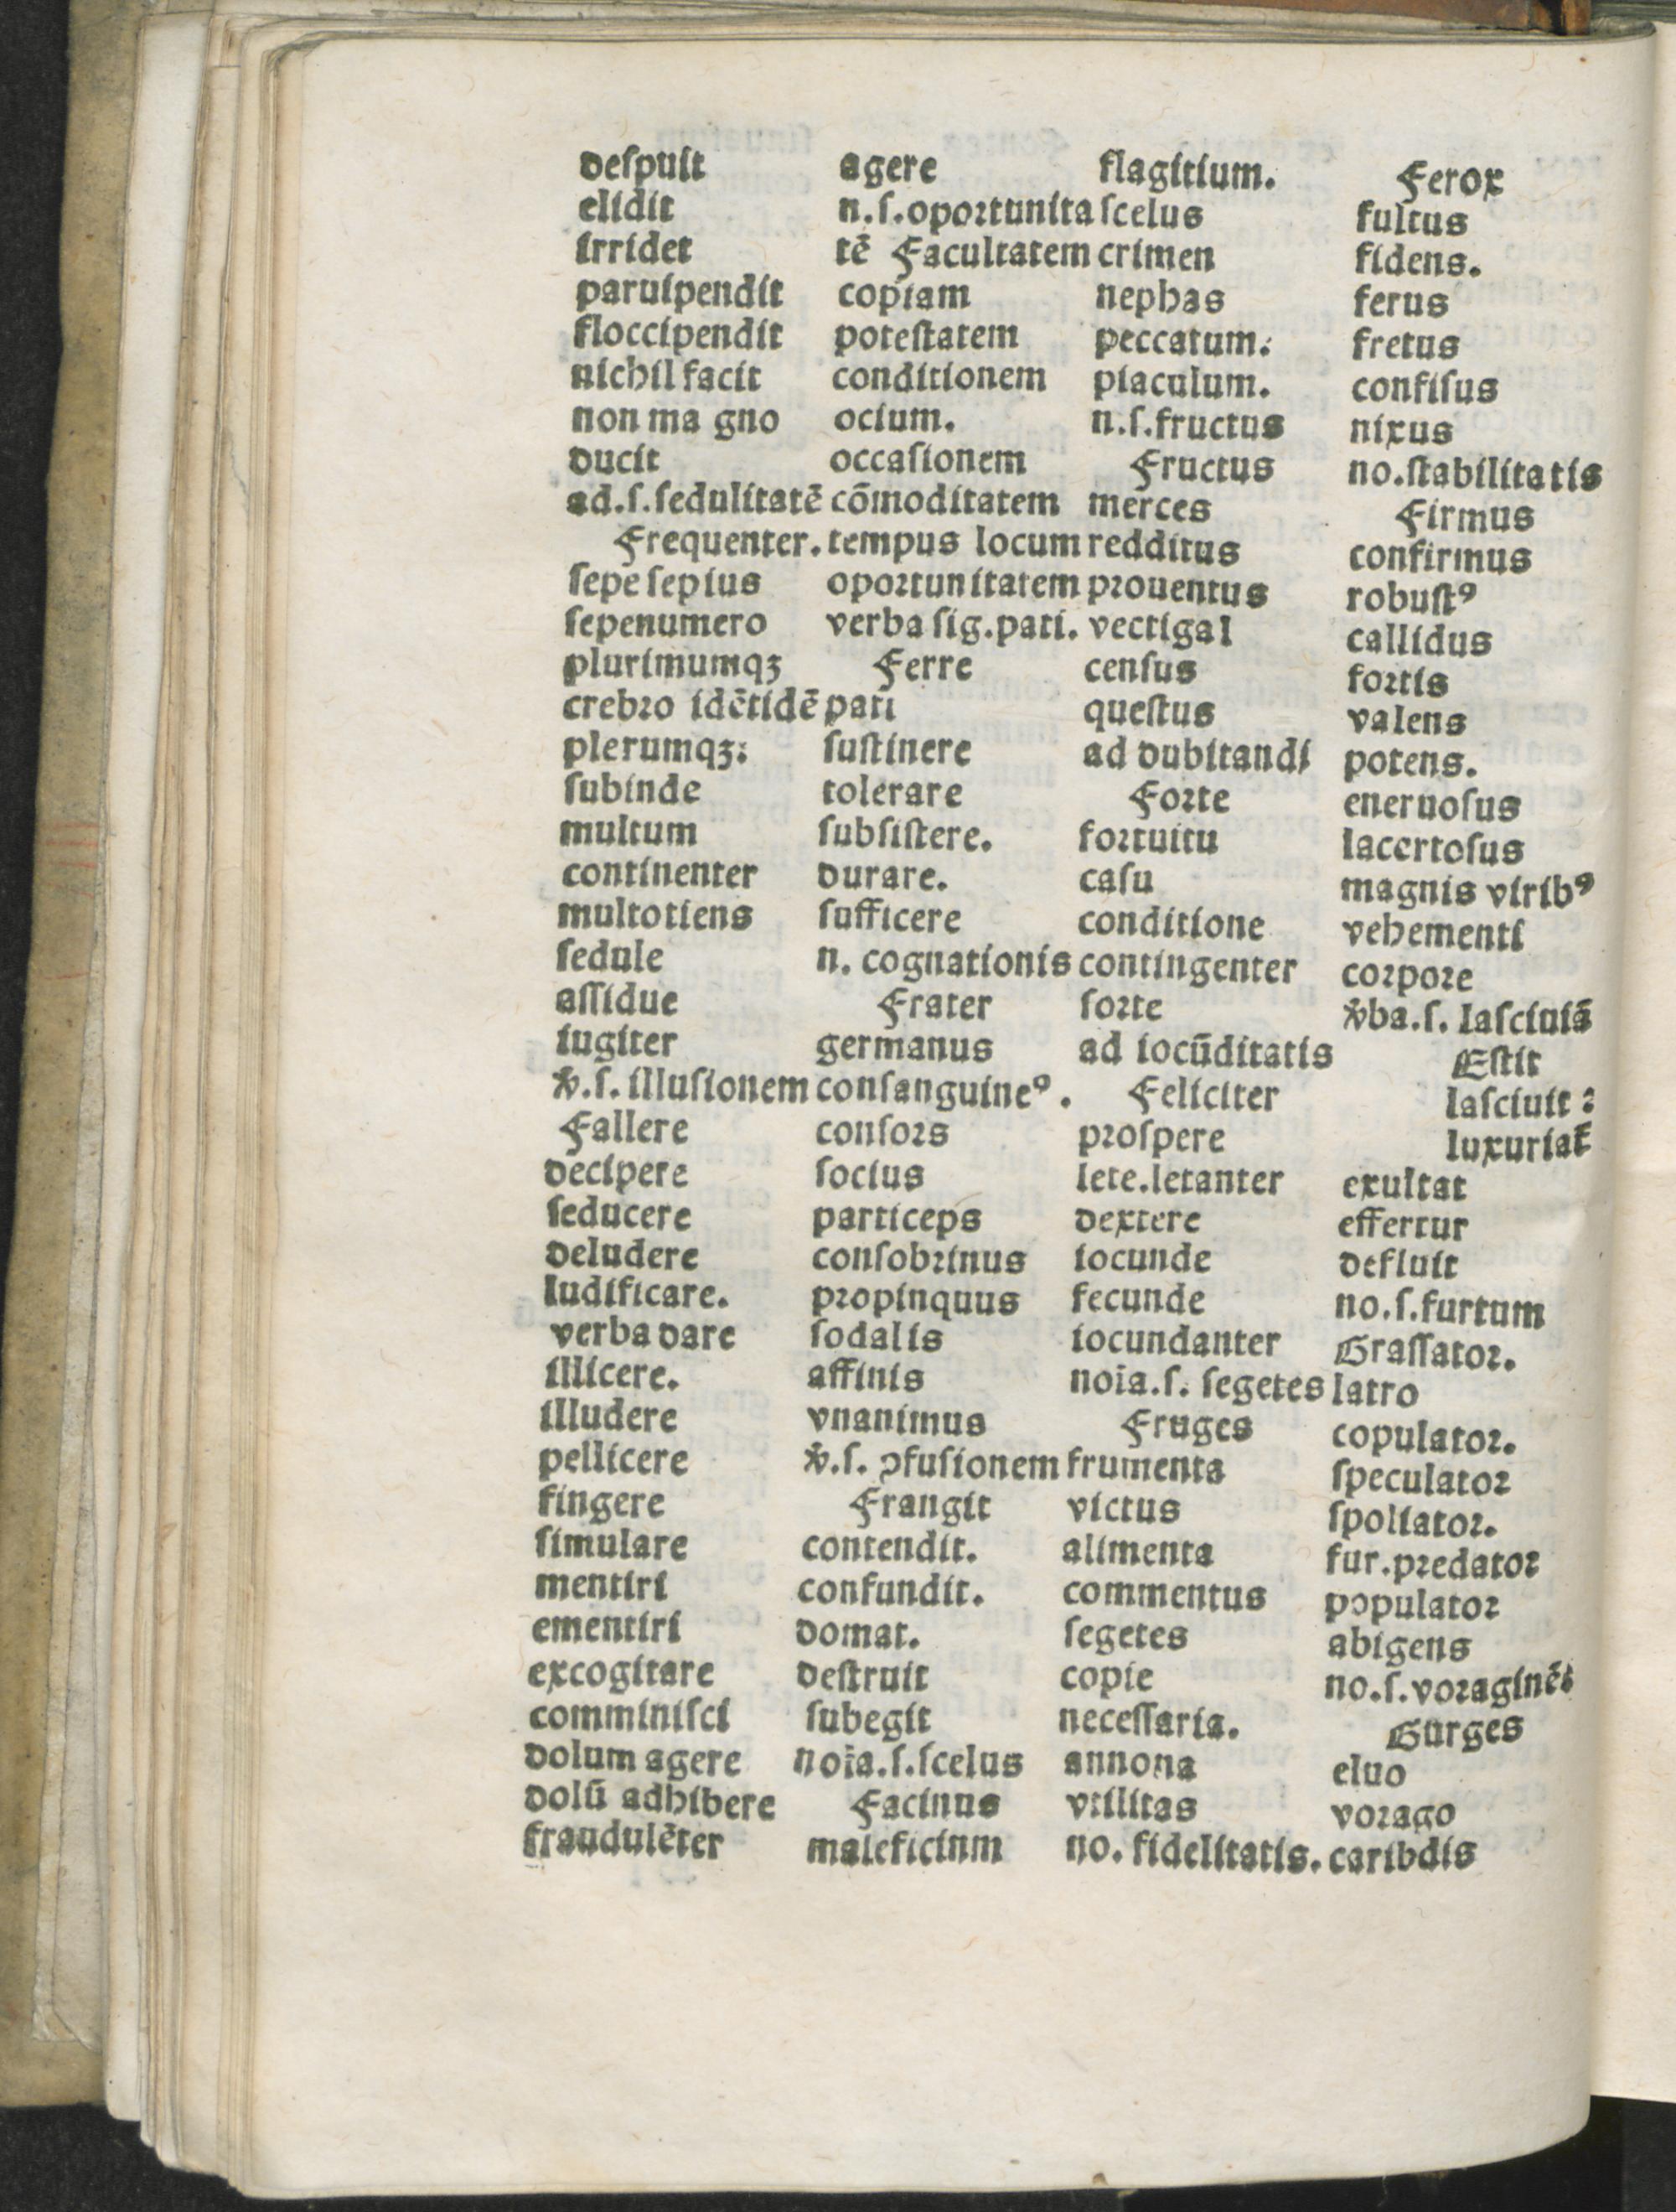 deſpuit
elidit
irridet
paruipendit
floccipendit
nichil facit
non ma gno
ducit
ad.ſ.ſedulitatē
Frequenter.
ſepe ſepius
ſepenumero
plurimumqꝫ
crebro idētidē
plerumqꝫ:
ſubinde
multum
continenter
multotiens
ſedule
aſſidue
iugiter
v̄.ſ. illuſionem
Fallere
decipere
ſeducere
deludere
ludificare.
verba dare
illicere.
illudere
pellicere
fingere
ſimulare
mentiri
ementiri
excogitare
comminiſci
dolum agere
dolū adhibere
fraudulēter
agere
n.ſ.oportunita
tē Facultatem
copiam
poteſtatem
conditionem
ocium.
occaſionem
cōmoditatem
tempus locum
oportunitatem
verba ſig.pati.
Ferre
pati
ſuſtinere
tolerare
ſubſiſtere.
durare.
ſufficere
n. cognationis
Frater
germanus
conſanguineꝰ.
conſors
ſocius
particeps
conſobrinus
propinquus
ſodalis
affinis
vnanimus
v̄.ſ. ꝯfuſionem
Frangit
contendit.
confundit.
domat.
deſtruit
ſubegit
noīa.ſ.ſcelus
Facinus
maleficium
flagitium.
ſcelus
crimen
nephas
peccatum.
piaculum.
n.ſ.fructus
Fructus
merces
redditus
prouentus
vectigal
cenſus
queſtus
ad dubitandi
Forte
fortuitu
caſu
conditione
contingenter
ſorte
ad iocūditatis
Feliciter
proſpere
lete.letanter
dextere
iocunde
fecunde
iocundanter
noīa.ſ. ſegetes
Fruges
frumenta
victus
alimenta
commentus
ſegetes
copie
neceſſaria.
annona
vtilitas
no. fidelitatis.
Ferox
fultus
fidens.
ferus
fretus
confiſus
nixus
no.ſtabilitatis
Firmus
confirmus
robuſtꝰ
callidus
fortis
valens
potens.
eneruoſus
lacertoſus
magnis viribꝰ
vehementi
corpore
v̄ba.ſ. laſciuiā
Eſtit
laſciuit:
luxuriat̄
exultat
effertur
defluit
no.ſ.furtum
Graſſator.
latro
copulator.
ſpeculator
ſpoliator.
fur.predator
populator
abigens
no.ſ.voraginē:
Gurges
eluo
vorago
caribdis